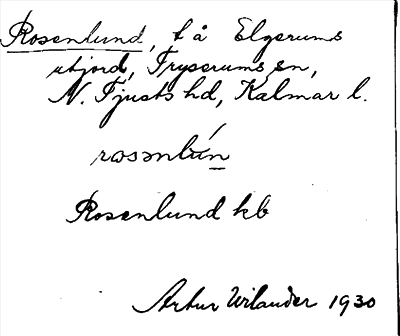 Rosenlund, t å Elgerums
utjord, Tryserums sn,
N. Tjusts hd, Kalmar l.
rosənlún
Rosenlund kb
Artur Wilander 1930